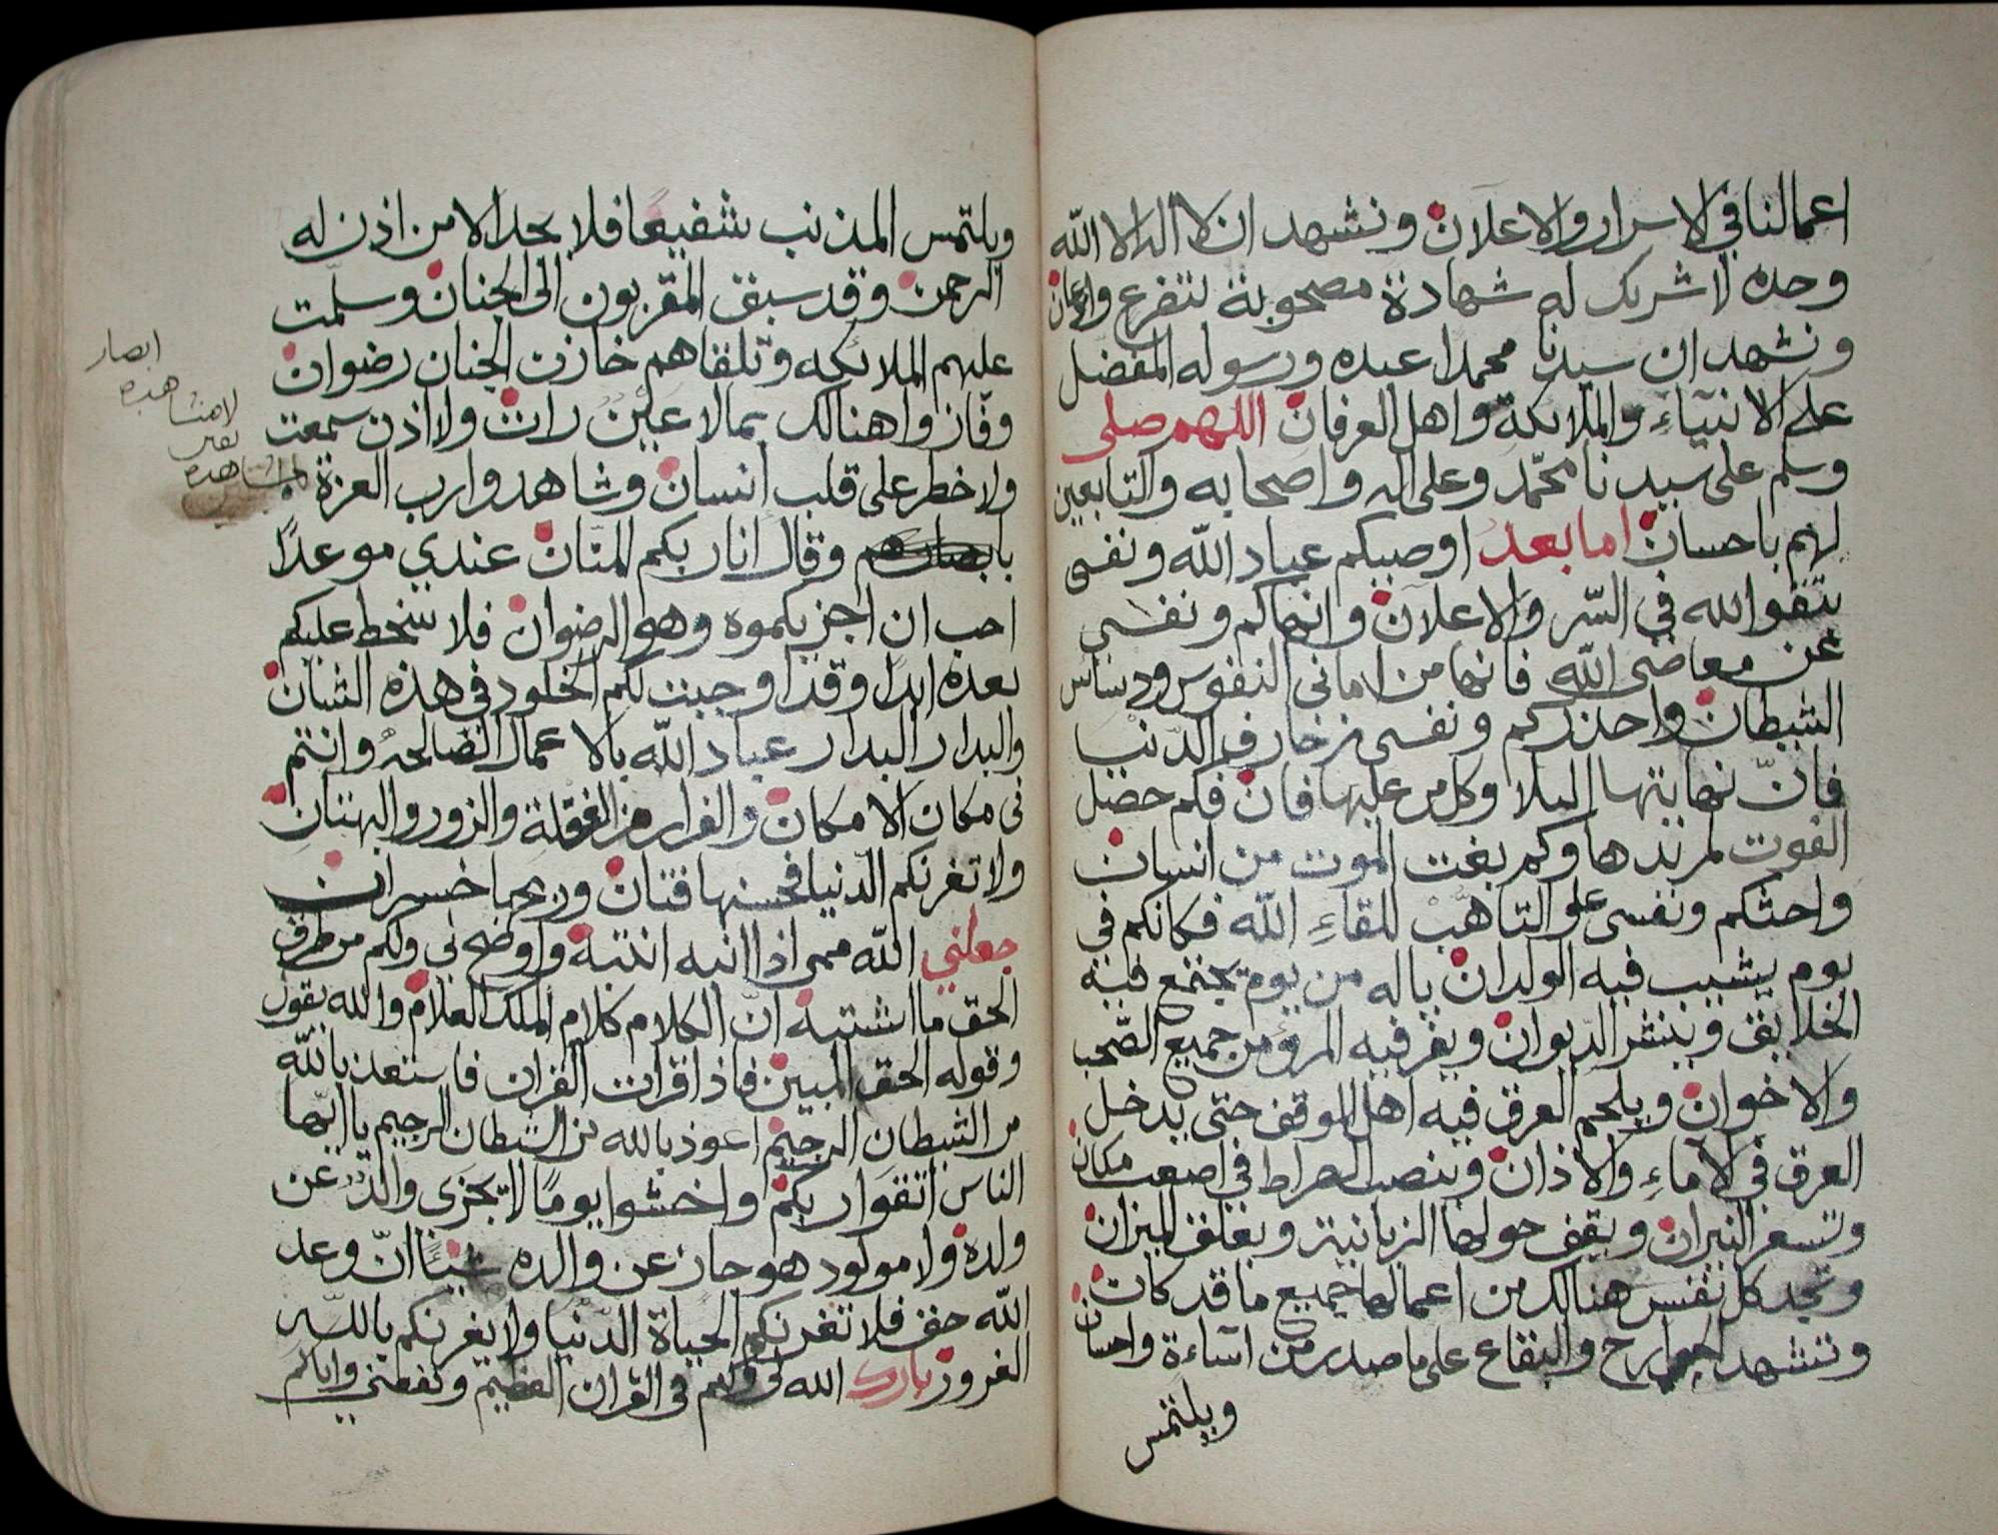 اعمالنا في الاسرار والاعلان ونشهد ان لا اله الا الله
وحده لا شريك له شهادة مصحوبة بتضرع واذعان
ونشهد ان سيدنا محمدا عبده ورسوله المفضل
على الانبياء والملائكة واهل العرفان اللهم صلى
وسلم على سيدنا محمد وعلى اله واصحابه والتابعين
لهم باحسان اما بعد اوصيكم عباد الله ونفسى
بتقوا الله في السر والاعلان وانهاكم ونفسي
عن معاصى الله فانها من امانى النفوس ودسائس
الشيطان واحذركم ونفسى زخارف الدنيا
فان نهايتها البلا وكل من عليها فان فكم حصل
الفوت لمريدها وكم بغت الموت من انسان
واحثكم ونفسى على التاهب للقاء الله فكانكم في
يوم يشيب فيه الولدان ياله من يوم يجتمع فيه
الخلايق وينشر الديوان ويفر فيه المرؤ من جميع الصحب
والاخوان ويلجم العرق فيه اهل الموقف حتى يدخل
العرق في الآماء والاذان وينصب الصراط في اصعب مكان
وتسعر النيران ويقف حولها الزبانية ويعلق الميزان
وتجد كل نفس هنالك من اعمالها جميع ما قد كان
وتشهد الجوارح والبقاع على ما صدر من اساءة واحسان
ويلتمس
ويلتمس المذنب شفيعا فلا يجد الا من اذن له
الرحمن وقد سبق المقربون الى الجنان وسلمت
عليهم الملائكه وتلقاهم خازن الجنان رضوان
وفازوا هنالك بمالا عين رات ولا اذن سمعت
ولا خطر على قلب انسان وشاهدوا رب العزة
بابصارهم وقال انا ربكم المنان عندي موعدا
احب ان اجزيكموه وهو الرضوان فلا سخط عليكم
بعده ابدا وقد اوجبت لكم الخلود في هذه الشان
والبدار البدار عباد الله بالاعمال الصالحه وانتم
فى مكان الامكان والفرار من الغفلة والزور والبهتان
ولا تغرنكم الدنيا فحسنها فتان وربحها خسران
جعلني الله ممن اذا انبه انتبه واوضح لى ولكم من طرق
الحق ما اشتبه ان الكلام كلام الملك العلام والله يقول
وقوله الحق المبين فاذا قرات القران فاستعذ بالله
من الشيطان الرجيم اعوذ بالله من الشيطان الرجيم يا ايها
الناس اتقوا ربكم واخشوا يوما لا يجزى والد عن
ولده ولا مولود هو جاز عن والده شيئا ان وعد
الله حق فلا تغرنكم الحياة الدنيا ولا يغرنكم بالله
الغرور بارك الله لى ولكم فى القران العظيم ونفعني واياكم
ابصار
لامشاهده
بغير
مشاهده